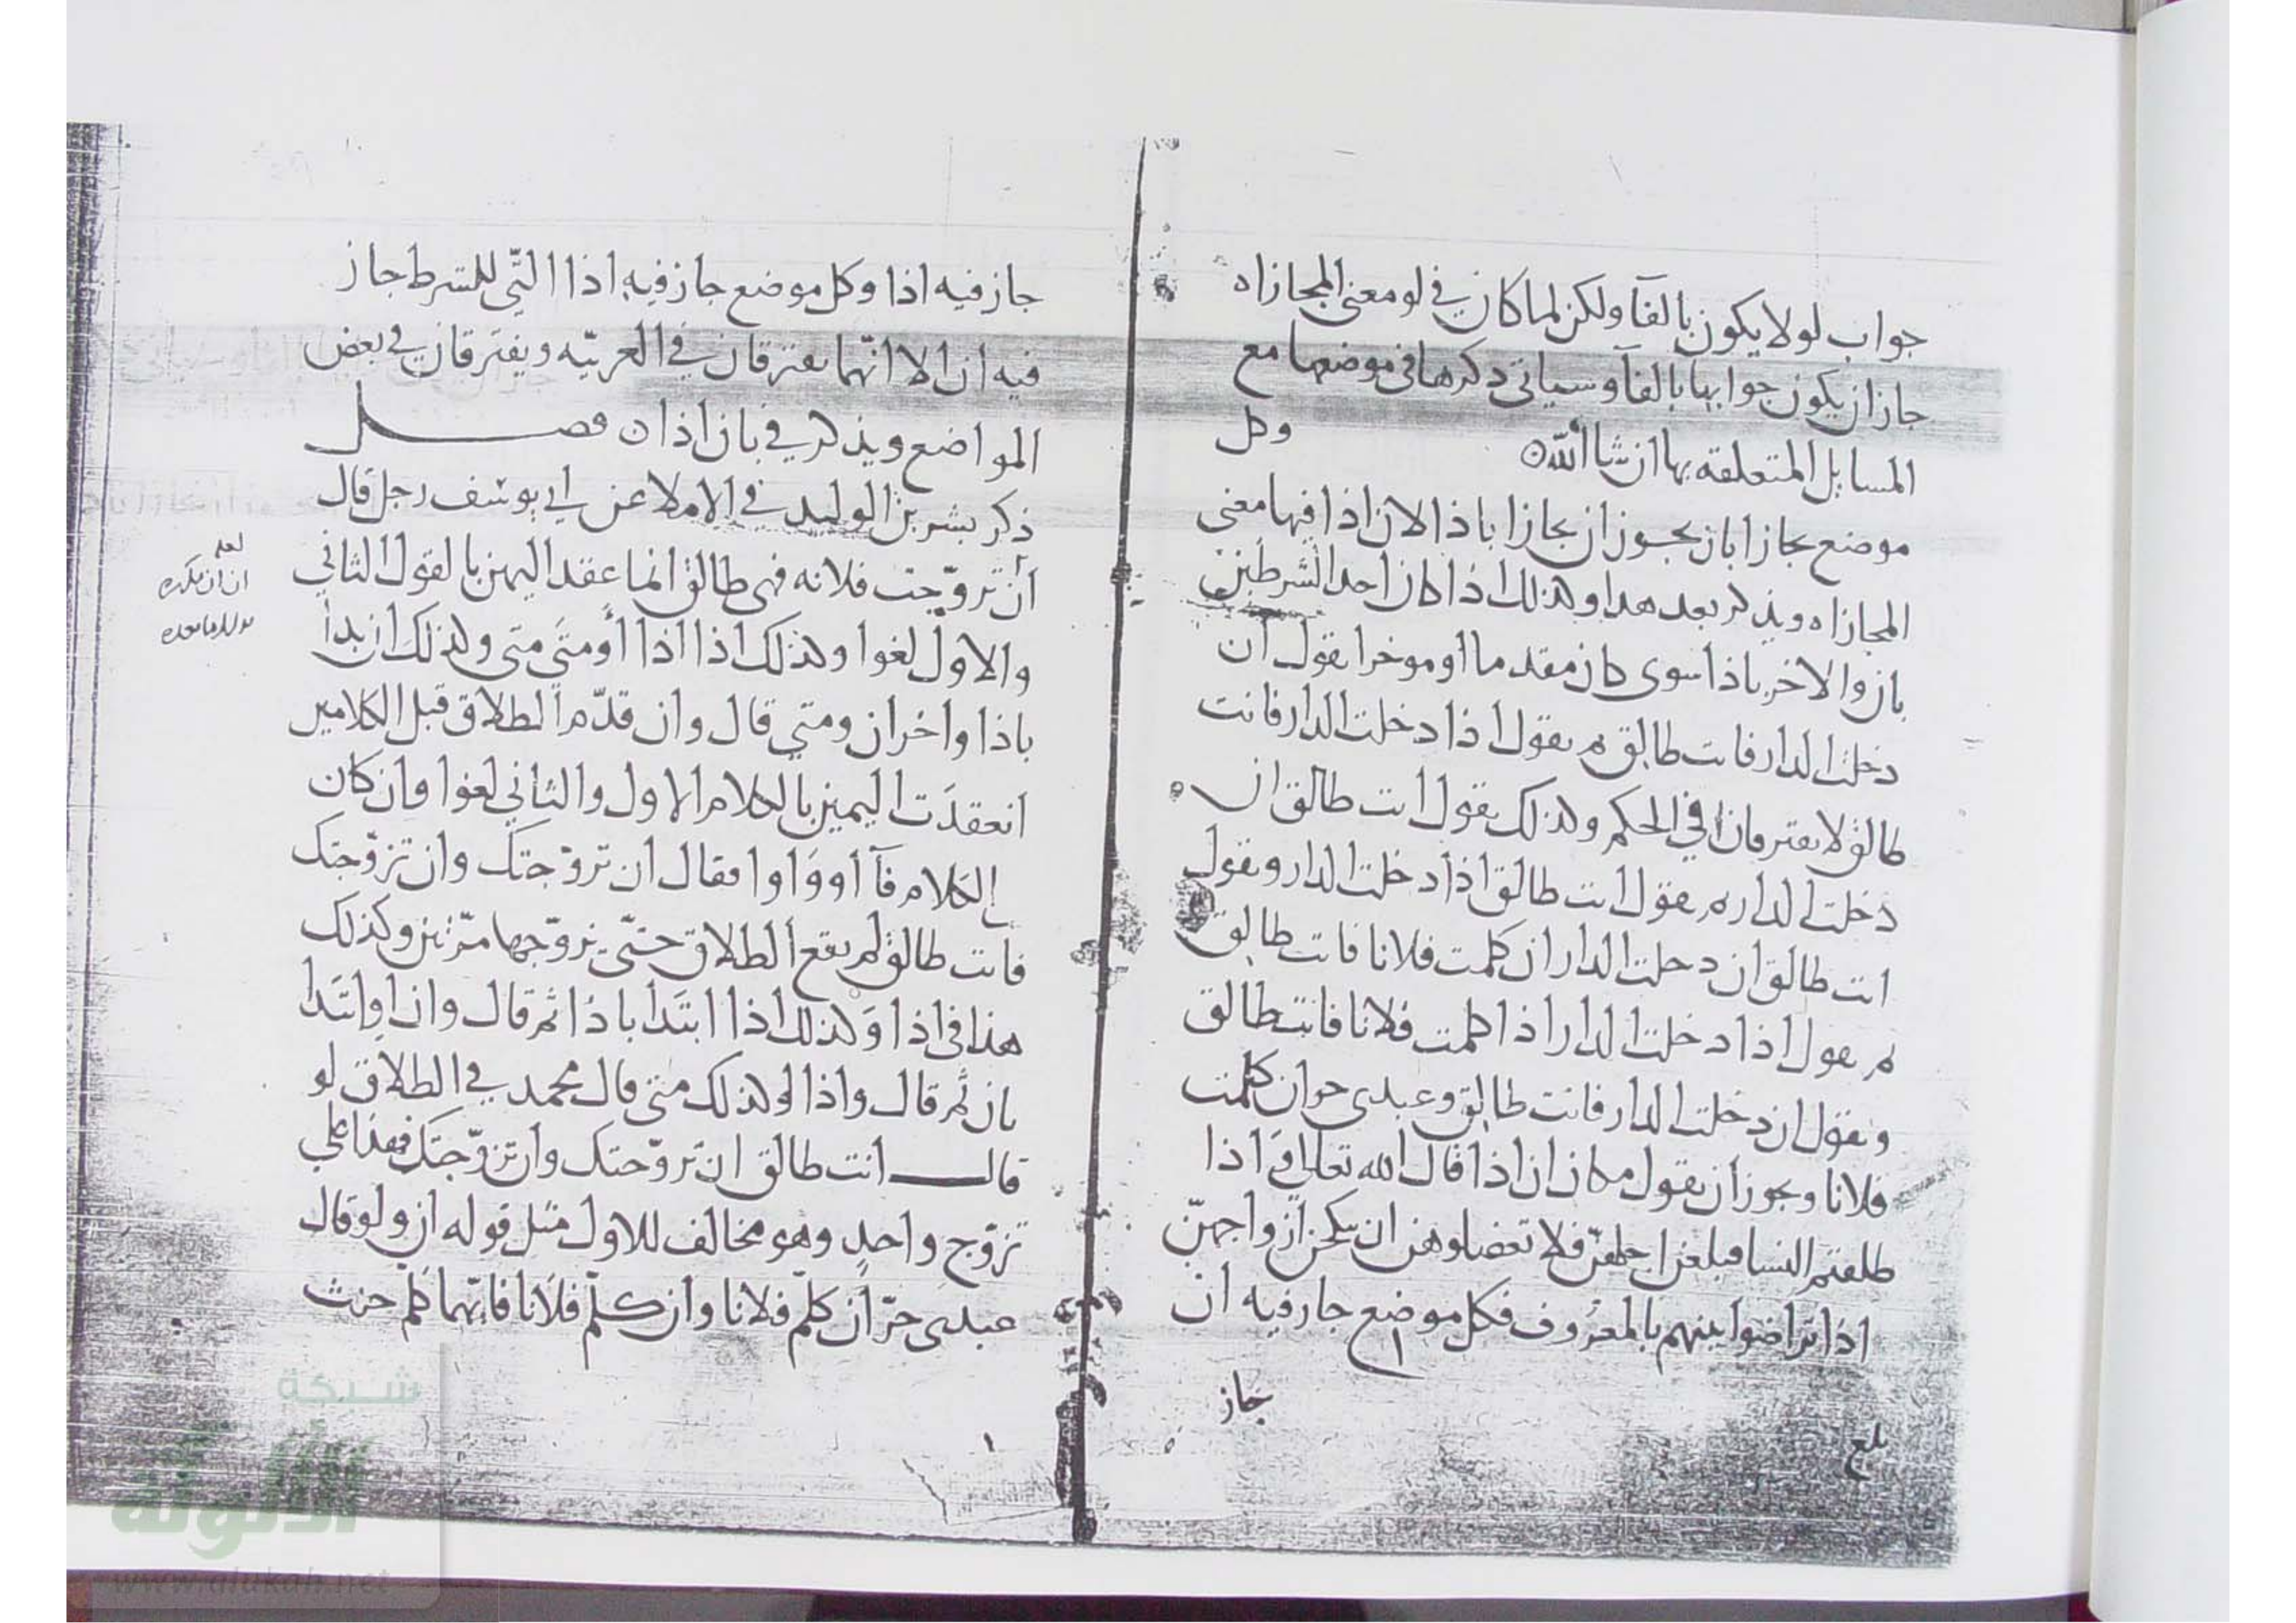 جواب لو لا يكون بالفآ ولكن لما كان في لو معنى المجازاه
جاز ان يكون جوابها بالفآ وسياتي ذكرها في موضعها مع
المسايل المتعلقه بها ان شا الله ه وكل
موضع يجازا بان يجوز ان يجازا باذا لان اذا فيها معنى
المجازاه ويذكر بعد هذا وكذلك اذا كان احد الشرطين
بان والاخر باذا سوى كان مقدما او موخرا يقول ان
دخلت الدار فانت طالق ثم يقول اذا دخلت الدار فانت
طالق لا يفترقان في الحكم وكذلك يقول انت طالق ان
دخلت الدار ثم يقول انت طالق اذا دخلت الدار ويقول
انت طالق ان دخلت الدار ان كلمت فلانا فانت طالق
ثم يقول اذا دخلت الدار اذا كلمت فلانا فانت طالق
ويقول ان دخلت الدار فانت طالق وعبدى حر ان كلمت
فلانا ويجوز ان يقول مكان ان اذا قال الله تعالى واذا
طلقتم النسا فبلغن اجلهن فلا تعضلوهن ان ينكحن ازواجهنّ
اذا تراضوا بينهم بالمعروف فكل موضع جاز فيه ان
جاز
بلغ
جاز فيه اذا وكل موضع جاز فيه اذا التّي للشرط جاز
فيه ان الا انّهما يفترقان في العربيّه ويفترقان في بعض
المواضع ويذكر في باب اذا ن فصل
ذكر بشر بن الوليد في الاملا عن ابي يوسف رجل قال
أن تزوّجت فلانه فهى طالق انما عقد اليمين بالقول الثاني
لعله
ان ان مكرره
والاول لغوا وكذلك اذا اذا أو متَى متى وكذلك ان بدا
باذا واخر ان ومتي قال وان قدّم الطلاق قبل الكلامين
انعقدَت اليمين بالكلام الاول والثاني لغوا وان كان
في الكلام فآ أو وَاوا فقال ان تزوّجتك وان تزوّجتك
فانت طالق لم يقع الطلاق حتّى يتزوّجها مرّتين وكذلك
هذا في اذا وَكذلك اذا ابتَدا باذا ثم قال وان او ابتَدا
بان ثم قال واذا وكذلك متى قال محمد في الطلاق لو
قال أنت طالق ان تزوّجتك وان تزوّجتك فهذا على
تزوّج واحدٍ وهو مخالف للاول مثل قوله ان ولو قال
عبدى حرّ أن كلّم فلانا وان كلّم فلانا فايّهما كلم حنث
شبكة
الألوكة
www.alukah.net